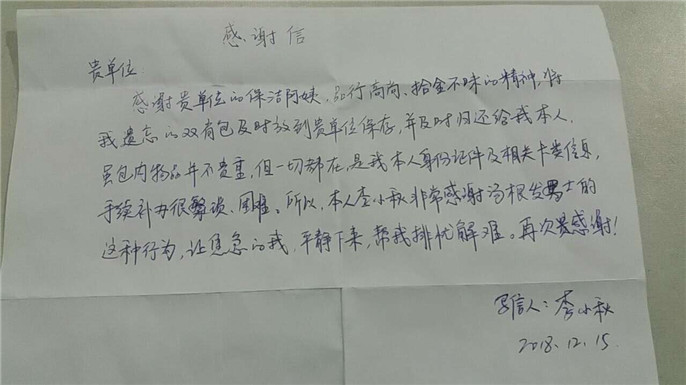 感谢信
贵单位
感谢贵单位的保洁阿姨,品行高尚、拾金不昧的精神,将
我遗忘的双肩包及时放到贵单位保存,并及时归还给我本人,
虽包内物品并不贵重,但一切都在,是我本人身份证件及相关卡类信息,
手续补办很繁琐、困难。所以,本人李小秋非常感谢冯根发男士的
这种行为,让焦急的我,平静下来,帮我排忧解难。再次感谢!
写信人:李小秋
2018.12.15